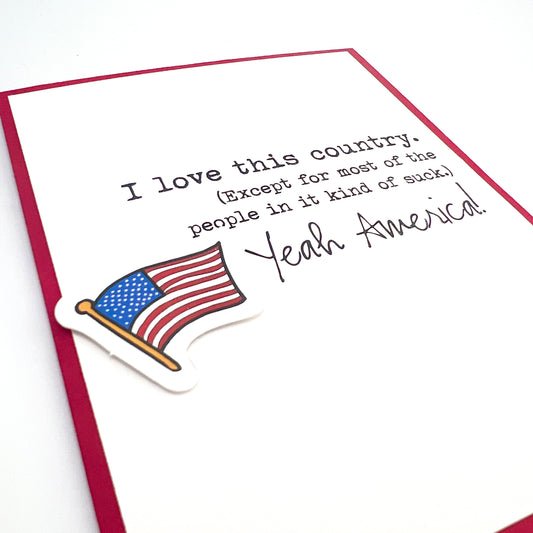 I love this country.
(Except for most of the
people in it kind of suck.)
Yeah America!